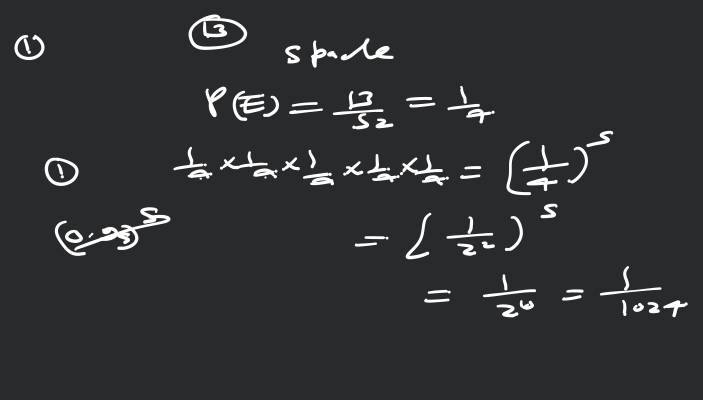 ① 13
spade
P(E) = 13/52 = 1/4
① 1/4 × 1/4 × 1/4 × 1/4 × 1/4 = (1/4)^5
= (1/2^2)^5
= 1/2^10 = 1/1024